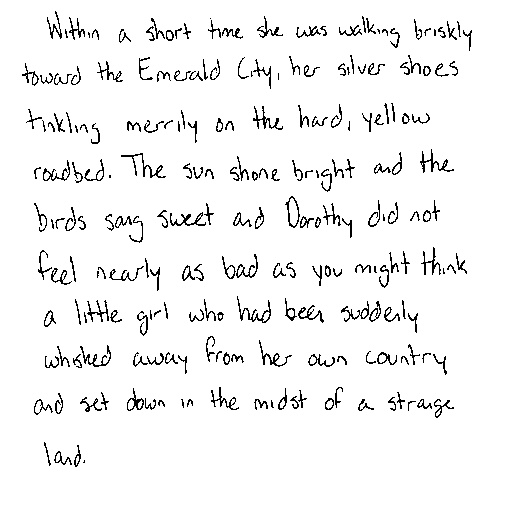 Within a short time she was walking briskly
toward the Emerald City, her silver shoes
tinkling merrily on the hard, yellow
roadbed. The sun shone bright and the
birds sang sweet and Dorothy did not
feel nearly as bad as you might think
a little girl who had been suddenly
whisked away from her own country
and set down in the midst of a strange
land.